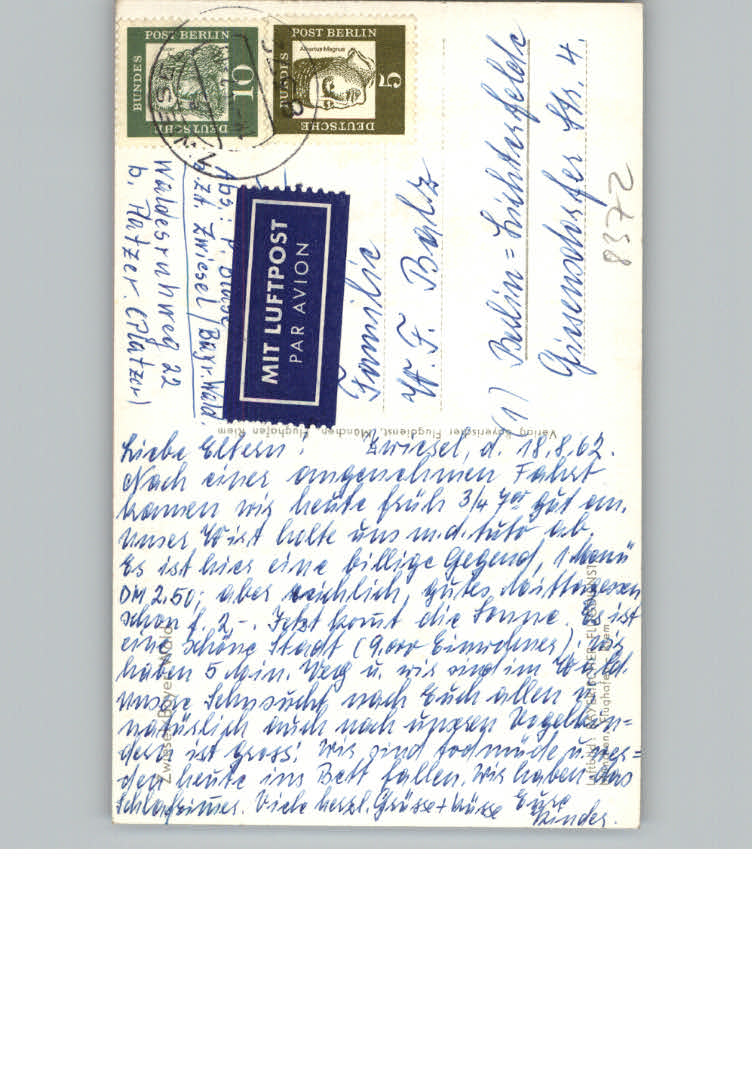 DEUTSCHE BUNDES POST BERLIN
10
DEUTSCHE BUNDES POST BERLIN
Albertus Magnus
5
MIT LUFTPOST
PAR AVION
z.Zt. Zwiesel / Bayr. Wald.
Waldesruhweg 22
b. Platzer. (Platzer)
Familie
W. F. Balz
(1) Berlin=Lichterfelde
Giesensdorfer Str. 4.
8372
Verlag Bayerischer Flugdienst, München Flughafen Riem
Zwiesel, Bayer. Wald
Liebe Eltern! Zwiesel, d. 18.8.62.
Nach einer angenehmen Fahrt
kamen wir heute früh 3/4 7 Uhr gut an.
Unser Wirt holte uns m.d. Auto ab.
Es ist hier eine billige Gegend, 1 Menü
DM 2.50; aber reichlich, gutes Mittagessen
schon f. 2-. Jetzt komt die Sonne. Es ist
eine schöne Stadt (9.000 Einwohner), wir
haben 5 Min. Weg u. wir sind im Wald.
Unsere Sehnsucht nach Euch allen u.
natürlich auch nach unsern Vogelkin=
dern ist gross! Wir sind todmüde u. wer=
den heute ins Bett fallen. Wir haben das
Schlafzimer. Viele herzl. Grüsse + Küsse Eure
Kinder.